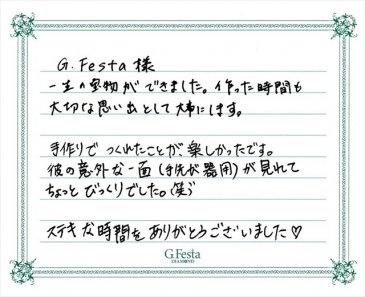 G.Festa 様
一生の宝物ができました。作った時間も
大切な思い出として大事にします。
手作りでつくれたことが、楽しかったです。
彼の意外な一面(手先が器用)が見れて
ちょっとびっくりでした。(笑)
ステキな時間をありがとうございました♡
G.Festa
DIAMOND